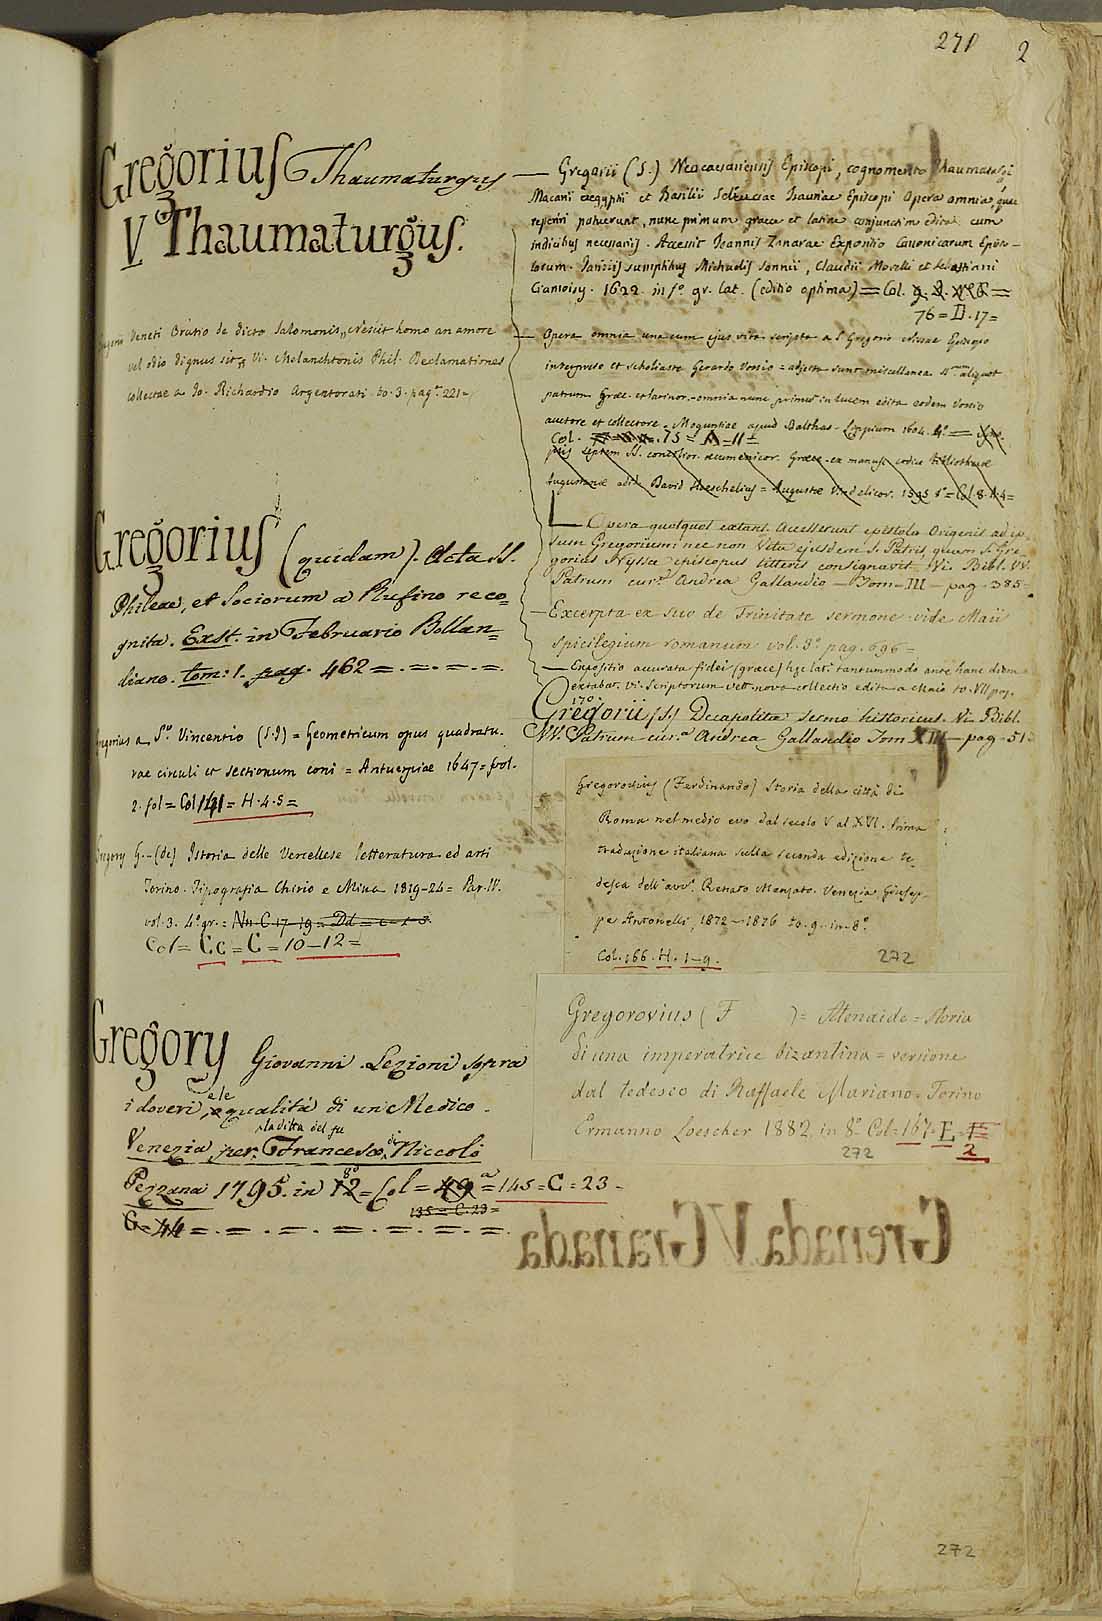 271 2
Gregorius Thaumaturgus
V Thaumaturgus.
Gregorii Veneti Oratio de dicto Salomonis, crescit homo an amore
vel odio dignus sit. Vi. Melanchtonis Phil. Declamationes
collectae a Jo. Richardio Argentorati to. 3. pag. 221=
Gregorius (quidam). Acta SS.
Phileae, et Sociorum a Rufino reco=
gnita. Exst. in Februario Bollan=
diano. tom: 1. pag. 462 =.=.=.=.
Gregorius a S.to Vincentio (S.J) = Geometricum opus quadratu.
rae circuli et sectionum coni = Antuerpiae 1647= fol.
2. fol = Col 141 = H. 4. 5 =
Gregory G.- (de) Istoria della Vercellese letteratura ed arti
Torino. Tipografia Chirio e Mina 1819-24= Par. IV.
vol. 3. 4.o gr. = Nn. C. 17-19 = Dd =
Col = Cc = C = 10 - 12 =
Gregory Giovanni. Lezioni sopra
i doveri, e le qualità di un Medico.
la ditta del fu
Venezia, per. Francesco di Niccolò
Pezzana 1795. in 12 8.o = Col = 49 = 145 = C = 23 -
135 = C. 23 =
G = 44 =.=.=.=.=.=.=
— Gregorii (S.) Neocaesariensis Episcopi, cognomento Thaumaturgi
Macarii Aegyptii et Basilii Seleuciae Isauriae Episcopi Opera omnia, quae
reperiri potuerunt, nunc primum graece et latine conjunctim edita cum
indicibus necessariis. Accessit Joannis Zonarae Expositio Canonicarum Episto-
larum. Parisiis sumptibus Michaelis Sonnii, Claudii Morelli et Sebastiani
Cramoisy. 1622. in f.o gr. lat. (editio optima) = Col.
76 = D. 17 =
— Opera omnia una cum ejus vita scripta a S. Gregorio Nissae Episcopo
interprete et scholiaste Gerardo Vossio = adjecta sunt miscellanea aliquot
patrum Graec. et latinor. omnia nunc primum in lucem edita eodem Vossio
auctore et collectore. Moguntiae apud Balthas. Lippium 1604. 4.o =
Col. 75 = N - 11 =
septem SS. concilior. oecumenicor. Graece ex manusc. codice bibliothecae
Augustanae edid. David Hoeschelius = Augustae Vindelicor. 1595 8.o = Col. 8. 14 =
— Opera quotquot extant. Accesserunt epistola Origenis ad ip
sum Gregorium nec non Vita ejusdem S. Patris quam S. Gre
gorius Nyssae episcopus litteris consignavit. Vi. Bibl. VV.
Patrum cur.a Andrea Gallandio — Tom — III — pag — 385 =
— Excerpta ex suo de Trinitate sermone vide Maii
Spicilegium romanum vol. 3.o pag. 696 =
— Expositio accurata fidei (graece) hic lat. tantummodo ante hanc diem
extabat. Vi. Scriptorum vett. nova collectio edita a Maio to. VII pag.
170
Gregorii (S.) Decapolitae sermo historicus. Vi. Bibl.
VV. Patrum cur.a Andrea Gallandio Tom XIII — pag — 51
Gregorovius (Ferdinando) Storia della città di
Roma nel medio evo dal secolo V al XVI. Prima
traduzione italiana sulla seconda edizione te-
desca dell'avv.o Renato Manzato. Venezia, Giusep-
pe Antonelli, 1872 - 1876 to. 9. in - 8.o
Col. 166. H. 1-9.
272
Gregorovius (F ) = Atenaide = Storia
di una imperatrice bizantina = versione
dal tedesco di Raffaele Mariano. Torino
Ermanno Loescher 1882 in 8.o Col = 167. E.
2
272
Grenada V Granada
272